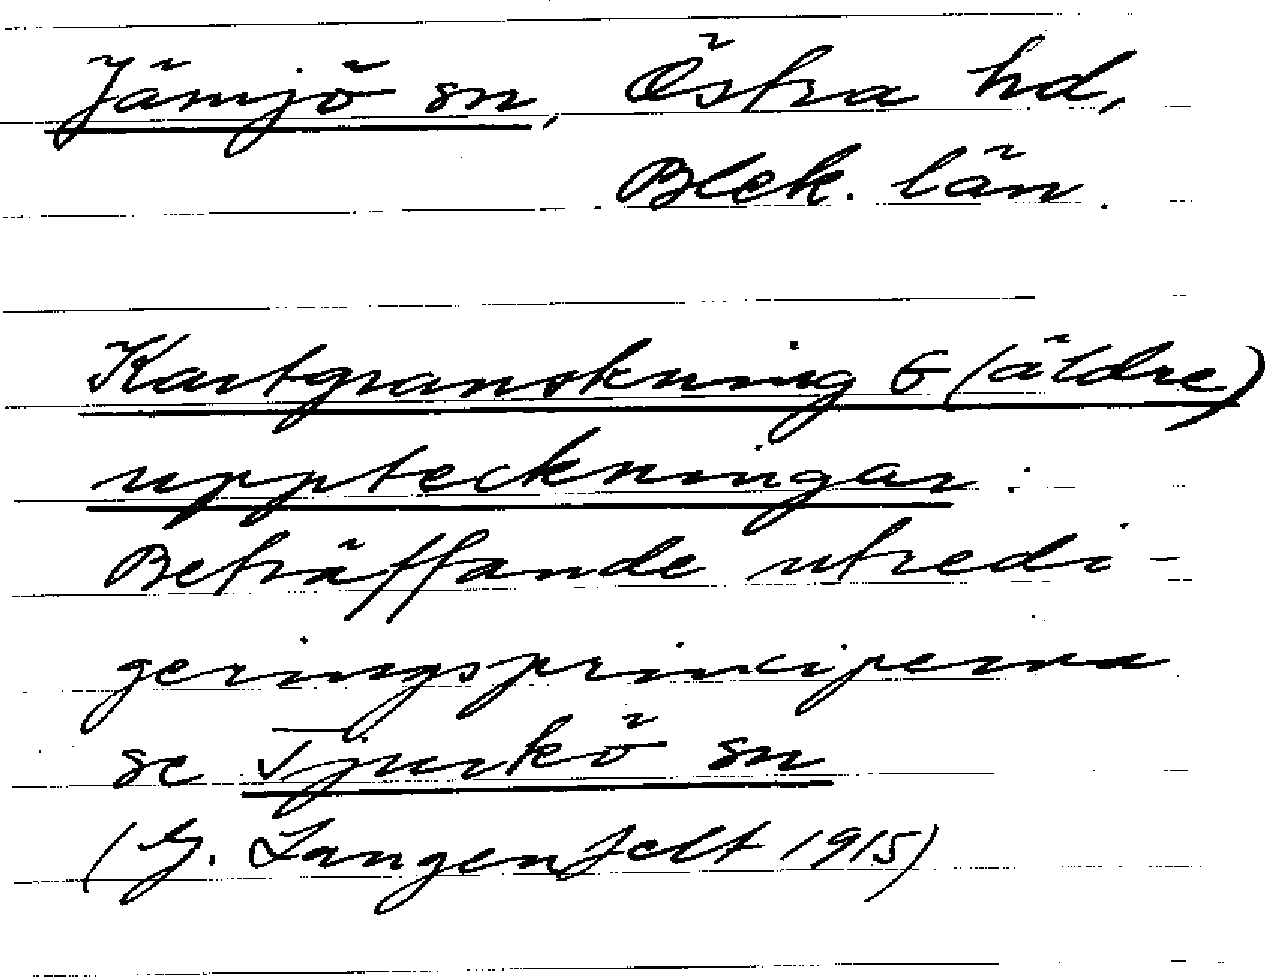 Jämjö sn, Östra hd,
Blek. län.
Kartgranskning G (äldre)
uppteckningar:
Beträffande utredi-
geringsprinciperna
se Tjurkö sn
(G. Langenfelt 1915)